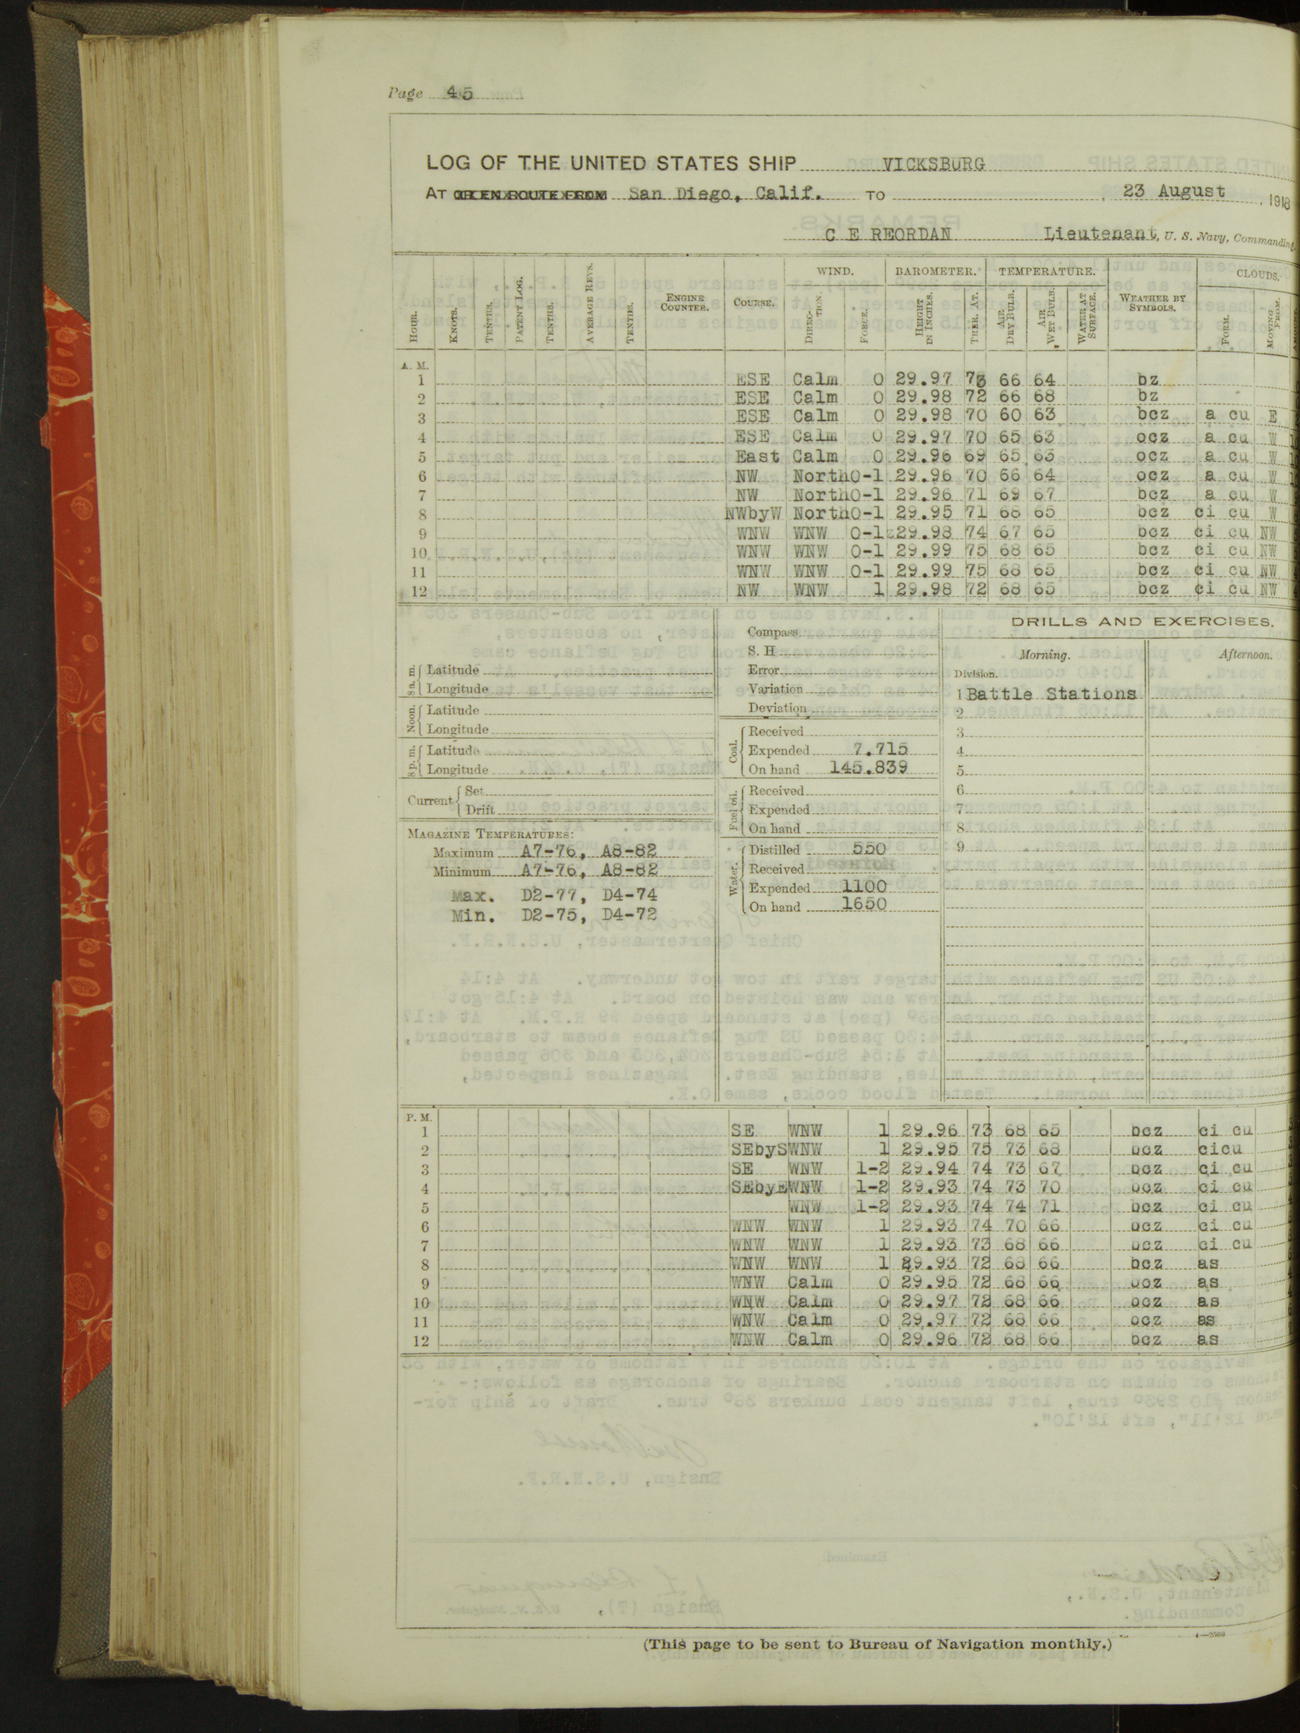 Page 45
LOG OF THE UNITED STATES SHIP VICKSBURG
AT OR EN ROUTE FROM San Diego, Calif. TO , 23 August , 1918
C E REORDAN Lieutenant, U. S. Navy, Commanding
WIND. BAROMETER. TEMPERATURE. CLOUDS.
HOUR. KNOTS. TENTHS. PATENT LOG. TENTHS. AVERAGE REVS. TENTHS. ENGINE COUNTER. COURSE. DIREC-TION. FORCE. HEIGHT IN INCHES. THER. AT. AIR DRY BULB. AIR WET BULB. WATER AT SURFACE. WEATHER BY SYMBOLS. FORM. MOVING FROM.
A. M.
1 ESE Calm 0 29.97 73 66 64 bz
2 ESE Calm 0 29.98 72 66 68 bz
3 ESE Calm 0 29.98 70 60 63 bcz a cu E
4 ESE Calm 0 29.97 70 65 63 ocz a cu W
5 East Calm 0 29.96 69 65 63 ocz a cu W
6 NW North 0-1 29.96 70 66 64 ocz a cu W
7 NW North 0-1 29.96 71 69 67 bcz a cu W
8 NWbyW North 0-1 29.95 71 68 65 bcz ci cu W
9 WNW WNW 0-1 29.98 74 67 65 bcz ci cu NW
10 WNW WNW 0-1 29.99 75 68 65 bcz ci cu NW
11 WNW WNW 0-1 29.99 75 68 65 bcz ci cu NW
12 NW WNW 1 29.98 72 68 65 bcz ci cu NW
8 a. m. Latitude
Longitude
Noon. Latitude
Longitude
8 p. m. Latitude
Longitude
Current Set
Drift
MAGAZINE TEMPERATURES:
Maximum A7-76, A8-82
Minimum A7-76, A8-82
Max. D2-77, D4-74
Min. D2-75, D4-72
Compass
S. H
Error
Variation
Deviation
Coal. Received
Expended 7.715
On hand 145.839
Fuel oil. Received
Expended
On hand
Water. Distilled 550
Received
Expended 1100
On hand 1650
DRILLS AND EXERCISES.
Morning. Afternoon.
Division.
1 Battle Stations
2
3
4
5
6
7
8
9
P. M.
1 SE WNW 1 29.96 73 68 65 bcz ci cu
2 SEbyS WNW 1 29.95 75 73 68 bcz cicu
3 SE WNW 1-2 29.94 74 73 67 bcz ci cu
4 SEbyE WNW 1-2 29.93 74 73 70 bcz ci cu
5 WNW 1-2 29.93 74 74 71 bcz ci cu
6 WNW WNW 1 29.93 74 70 66 bcz ci cu
7 WNW WNW 1 29.93 73 68 66 bcz ci cu
8 WNW WNW 1 29.93 72 68 66 bcz as
9 WNW Calm 0 29.95 72 68 66 bcz as
10 WNW Calm 0 29.97 72 68 66 bcz as
11 WNW Calm 0 29.97 72 68 66 bcz as
12 WNW Calm 0 29.96 72 68 66 bcz as
(This page to be sent to Bureau of Navigation monthly.)